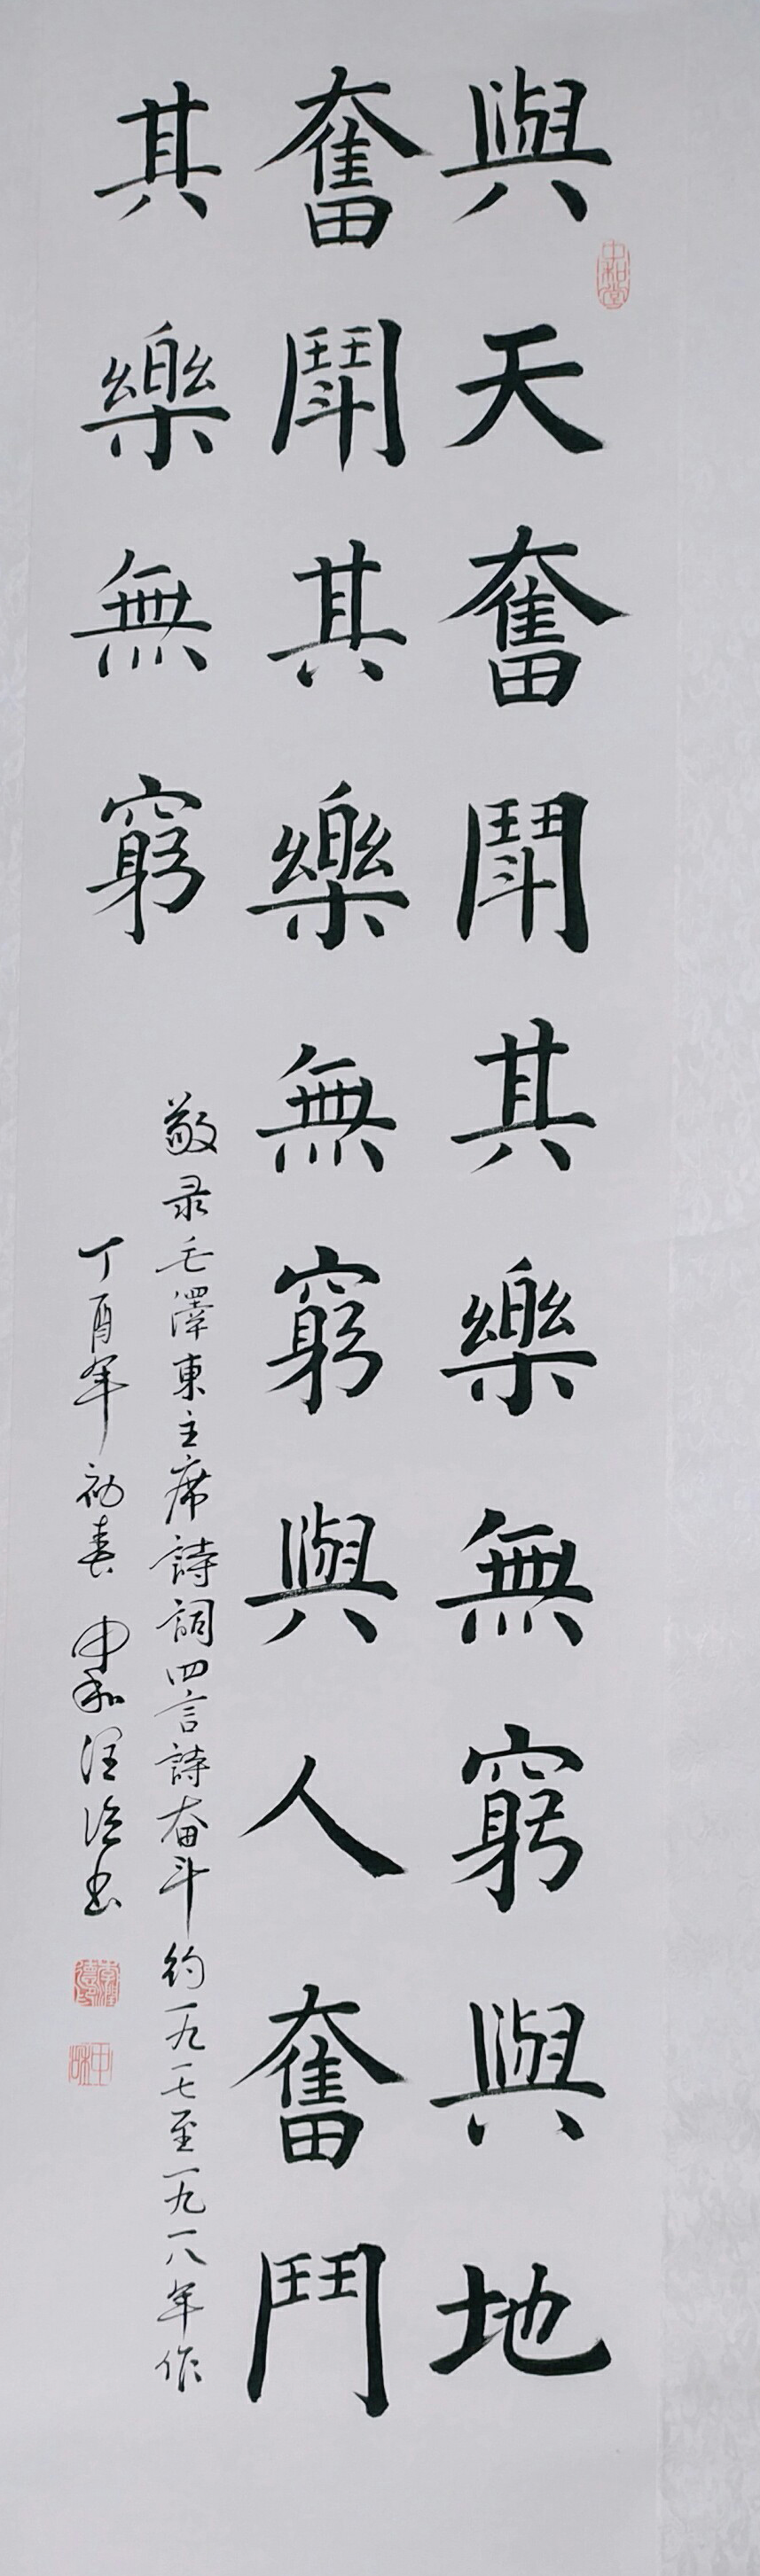 與天奮鬭其樂無窮與地
奮鬭其樂無窮與人奮鬥
其樂無窮
敬录毛澤東主席詩詞四言詩奋斗約一九一七至一九一八年作
丁酉年初春 中和 书
中和堂
中和